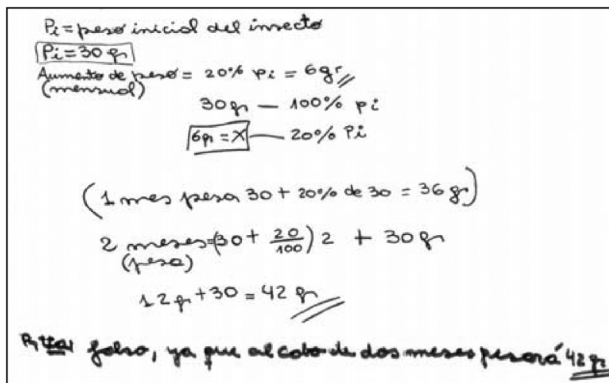 Pi = peso inicial del insecto
Pi = 30 gr
Aumento de peso = 20% Pi = 6gr
(mensual)
30gr — 100% Pi
6gr = X — 20% Pi
(1 mes pesa 30 + 20% de 30 = 36 gr)
2 meses = (30 + 20/100) 2 + 30gr
(pesa)
12gr + 30 = 42 gr
falso, ya que al cabo de dos meses pesará 42 gr